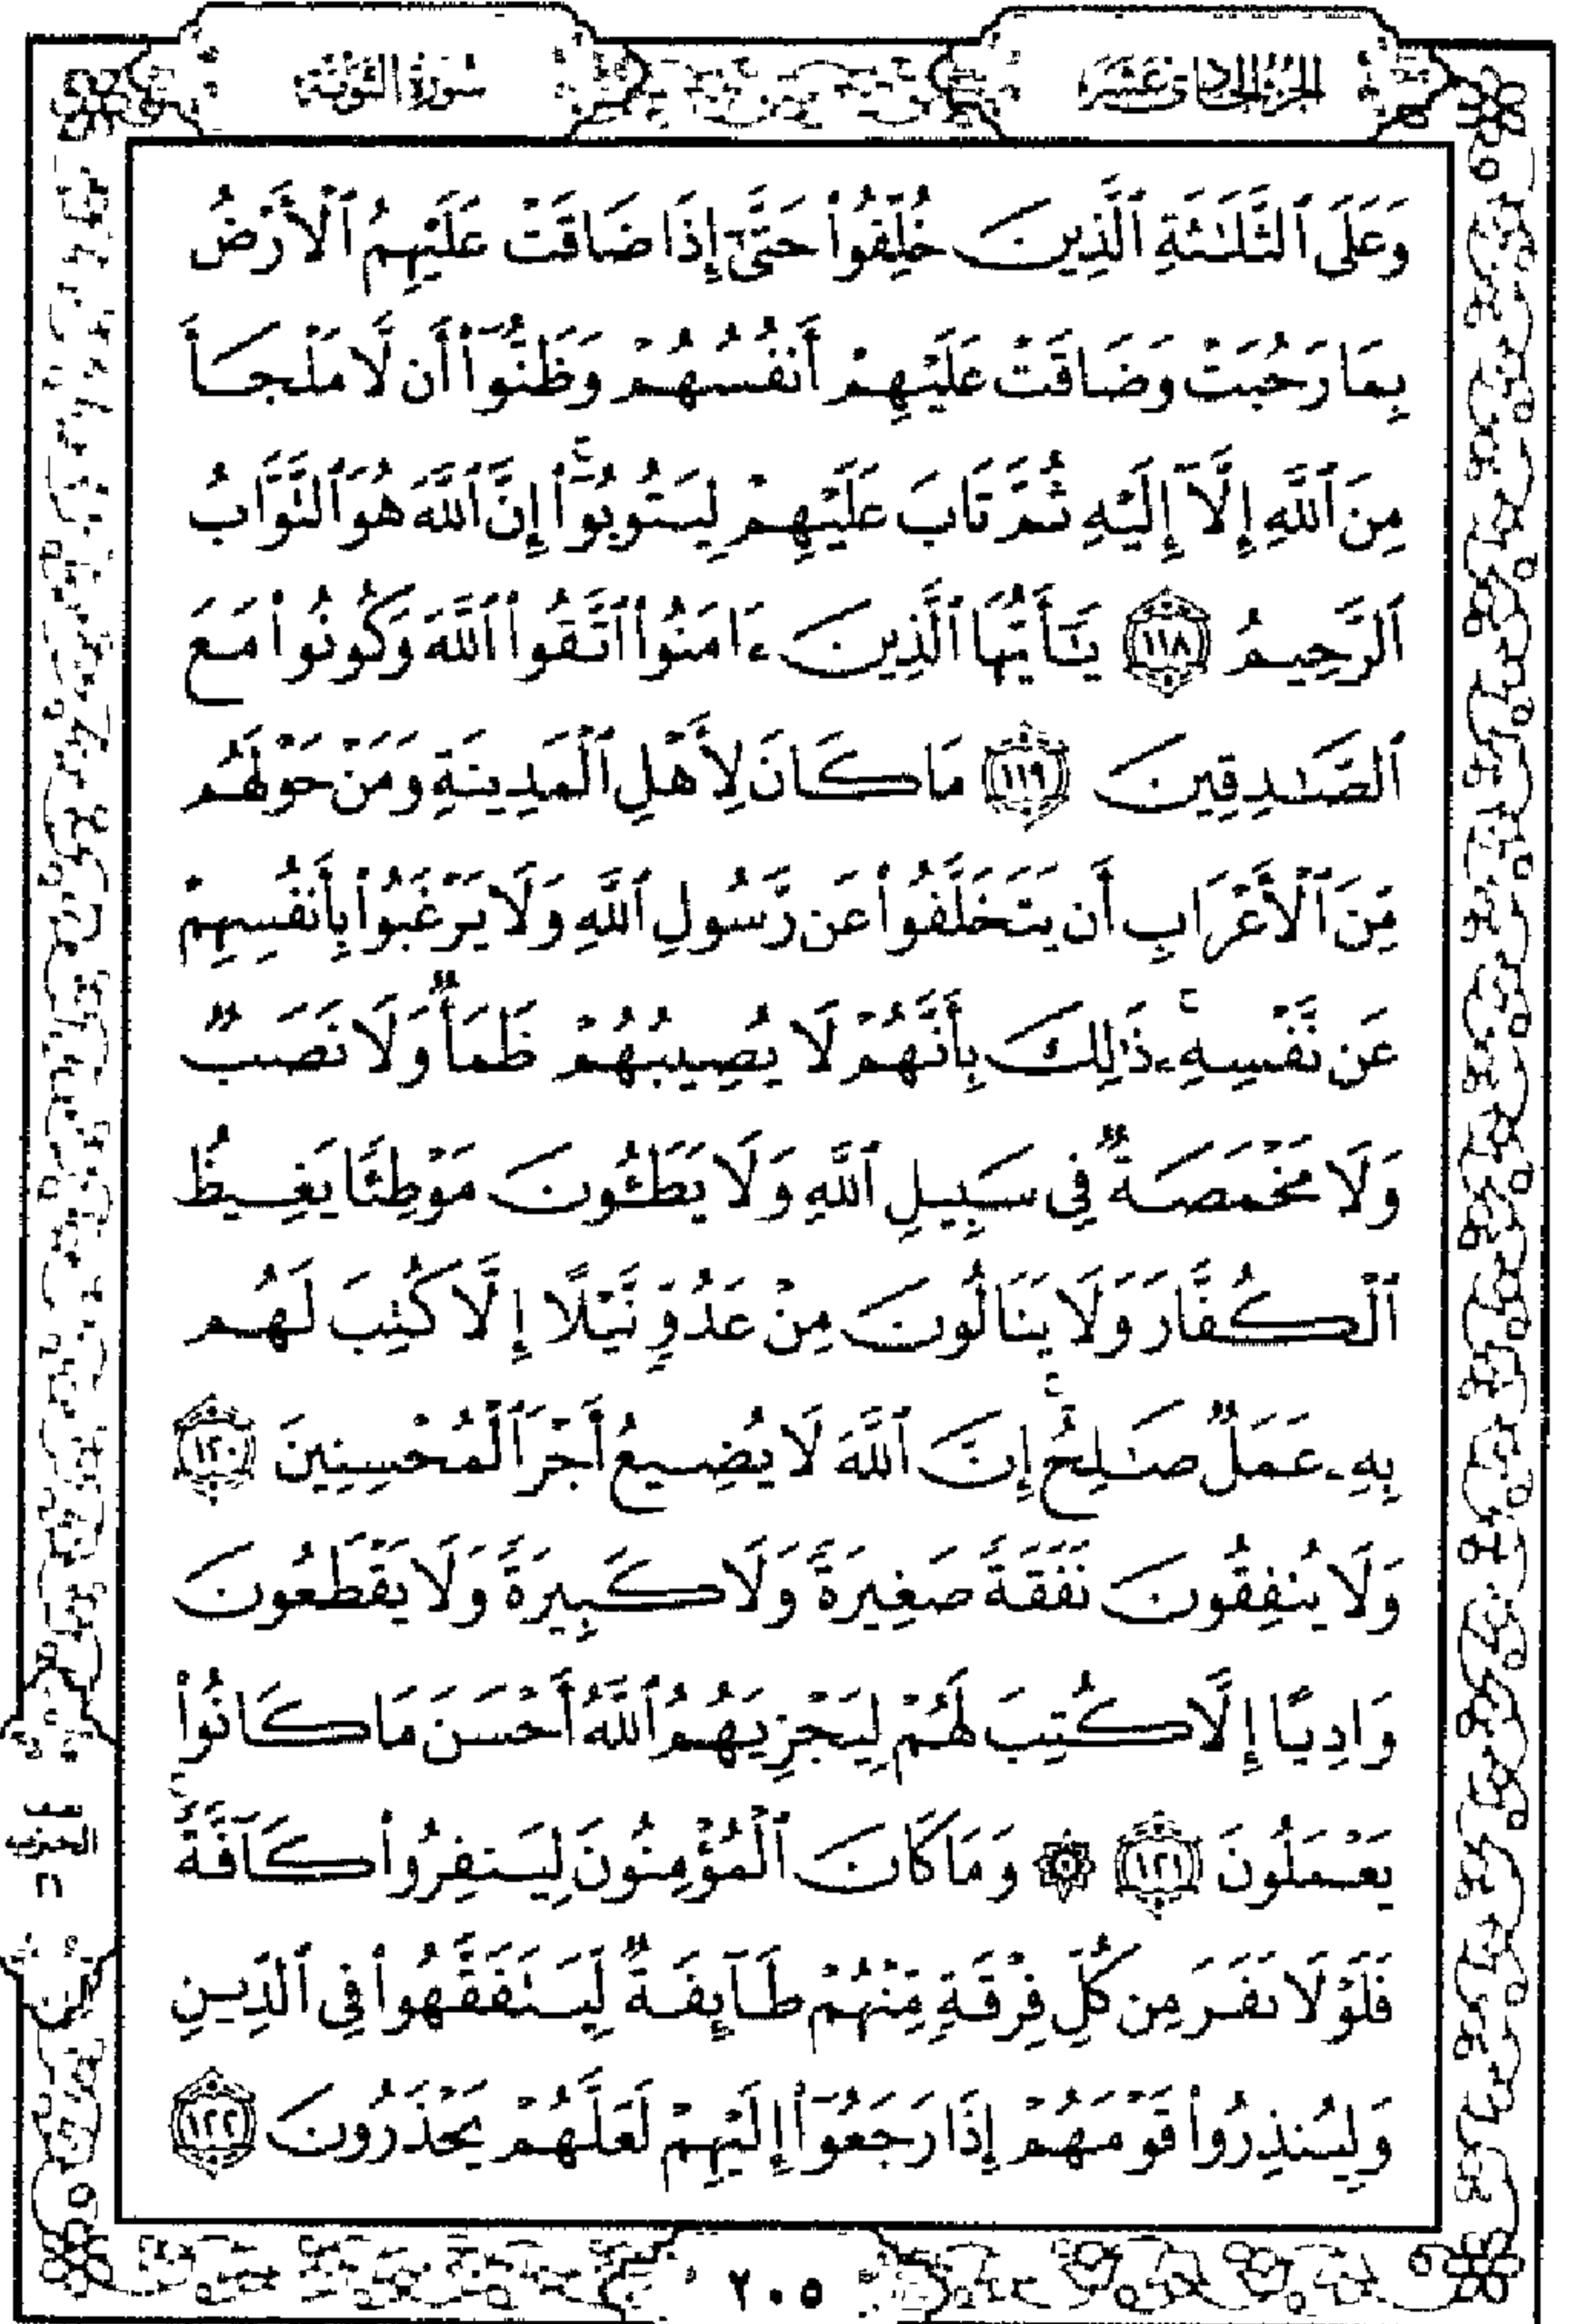 الجزء الحادي عشر
سورة التوبة
وَعَلَى ٱلثَّلَـٰثَةِ ٱلَّذِينَ خُلِّفُوا۟ حَتَّىٰٓ إِذَا ضَاقَتْ عَلَيْهِمُ ٱلْأَرْضُ
بِمَا رَحُبَتْ وَضَاقَتْ عَلَيْهِمْ أَنفُسُهُمْ وَظَنُّوٓا۟ أَن لَّا مَلْجَأَ
مِنَ ٱللَّهِ إِلَّآ إِلَيْهِ ثُمَّ تَابَ عَلَيْهِمْ لِيَتُوبُوٓا۟ ۚ إِنَّ ٱللَّهَ هُوَ ٱلتَّوَّابُ
ٱلرَّحِيمُ ١١٨ يَـٰٓأَيُّهَا ٱلَّذِينَ ءَامَنُوا۟ ٱتَّقُوا۟ ٱللَّهَ وَكُونُوا۟ مَعَ
ٱلصَّـٰدِقِينَ ١١٩ مَا كَانَ لِأَهْلِ ٱلْمَدِينَةِ وَمَنْ حَوْلَهُم
مِّنَ ٱلْأَعْرَابِ أَن يَتَخَلَّفُوا۟ عَن رَّسُولِ ٱللَّهِ وَلَا يَرْغَبُوا۟ بِأَنفُسِهِمْ
عَن نَّفْسِهِۦ ۚ ذَٰلِكَ بِأَنَّهُمْ لَا يُصِيبُهُمْ ظَمَأٌ وَلَا نَصَبٌ
وَلَا مَخْمَصَةٌ فِى سَبِيلِ ٱللَّهِ وَلَا يَطَـُٔونَ مَوْطِئًا يَغِيظُ
ٱلْكُفَّارَ وَلَا يَنَالُونَ مِنْ عَدُوٍّ نَّيْلًا إِلَّا كُتِبَ لَهُم
بِهِۦ عَمَلٌ صَـٰلِحٌ ۚ إِنَّ ٱللَّهَ لَا يُضِيعُ أَجْرَ ٱلْمُحْسِنِينَ ١٢٠
وَلَا يُنفِقُونَ نَفَقَةً صَغِيرَةً وَلَا كَبِيرَةً وَلَا يَقْطَعُونَ
وَادِيًا إِلَّا كُتِبَ لَهُمْ لِيَجْزِيَهُمُ ٱللَّهُ أَحْسَنَ مَا كَانُوا۟
يَعْمَلُونَ ١٢١ ۞ وَمَا كَانَ ٱلْمُؤْمِنُونَ لِيَنفِرُوا۟ كَآفَّةً ۚ
فَلَوْلَا نَفَرَ مِن كُلِّ فِرْقَةٍ مِّنْهُمْ طَآئِفَةٌ لِّيَتَفَقَّهُوا۟ فِى ٱلدِّينِ
وَلِيُنذِرُوا۟ قَوْمَهُمْ إِذَا رَجَعُوٓا۟ إِلَيْهِمْ لَعَلَّهُمْ يَحْذَرُونَ ١٢٢
٢٠٥